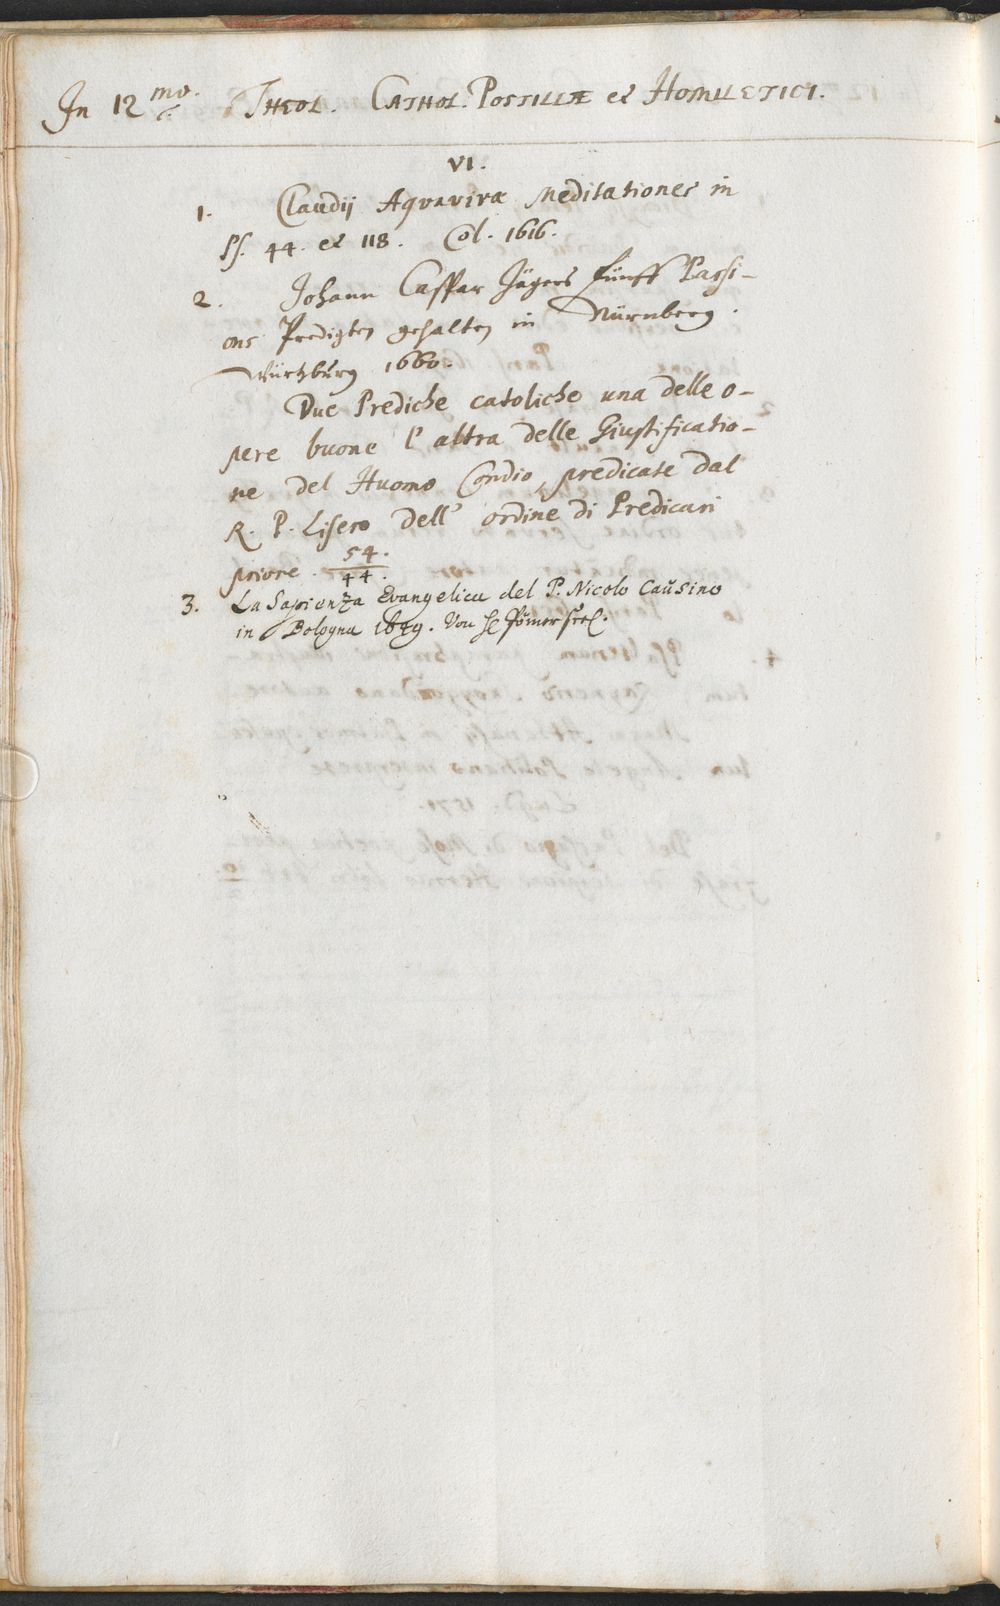 In 12 mo. THEOL. CATHOL. POSTILLÆ et HOMILETICI.
VI.
1. Claudij Aquavivæ Meditationes in
Ps. 44. et 118. Col. 1616.
2. Johann Caspar Jägers fünff Passi-
ons Predigten gehalten in Nürnberg.
Würtzburg 1660.
Due Prediche catoliche una delle o-
pere buone l'altra delle Giustificatio-
ne del Huomo Condio, predicate dal
R. P. Lisero dell' ordine di Predicari
priore. 54. 44.
3. La Sapienza Evangelica del P. Nicolo Causino
in Bologna 1649. Von H